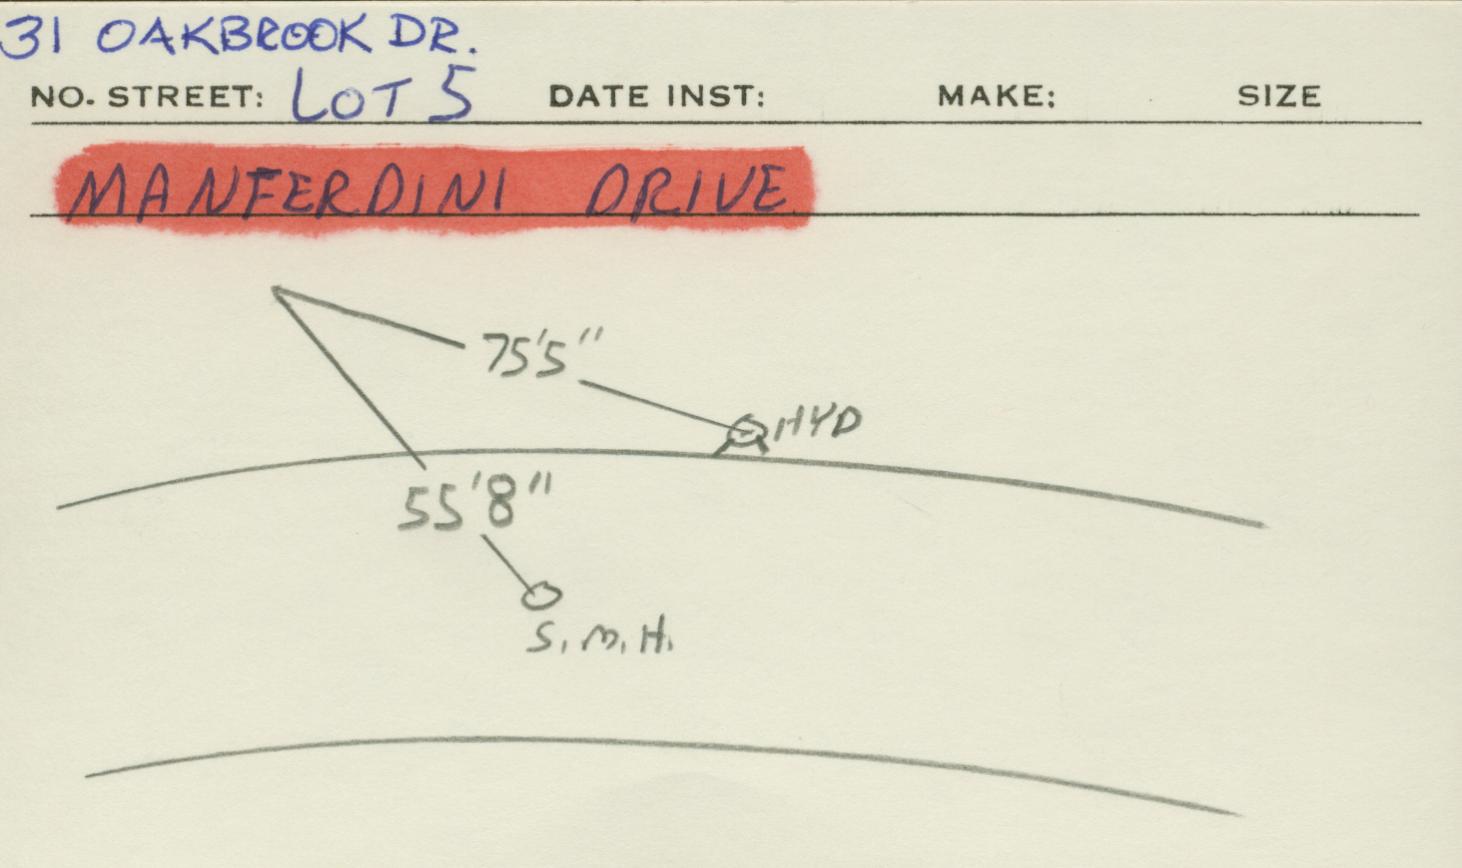 31 OAKBROOK DR.
NO. STREET: LOT 5 DATE INST: MAKE: SIZE
MANFERDINI DRIVE
75'5"
HYD
55'8"
S.M.H.